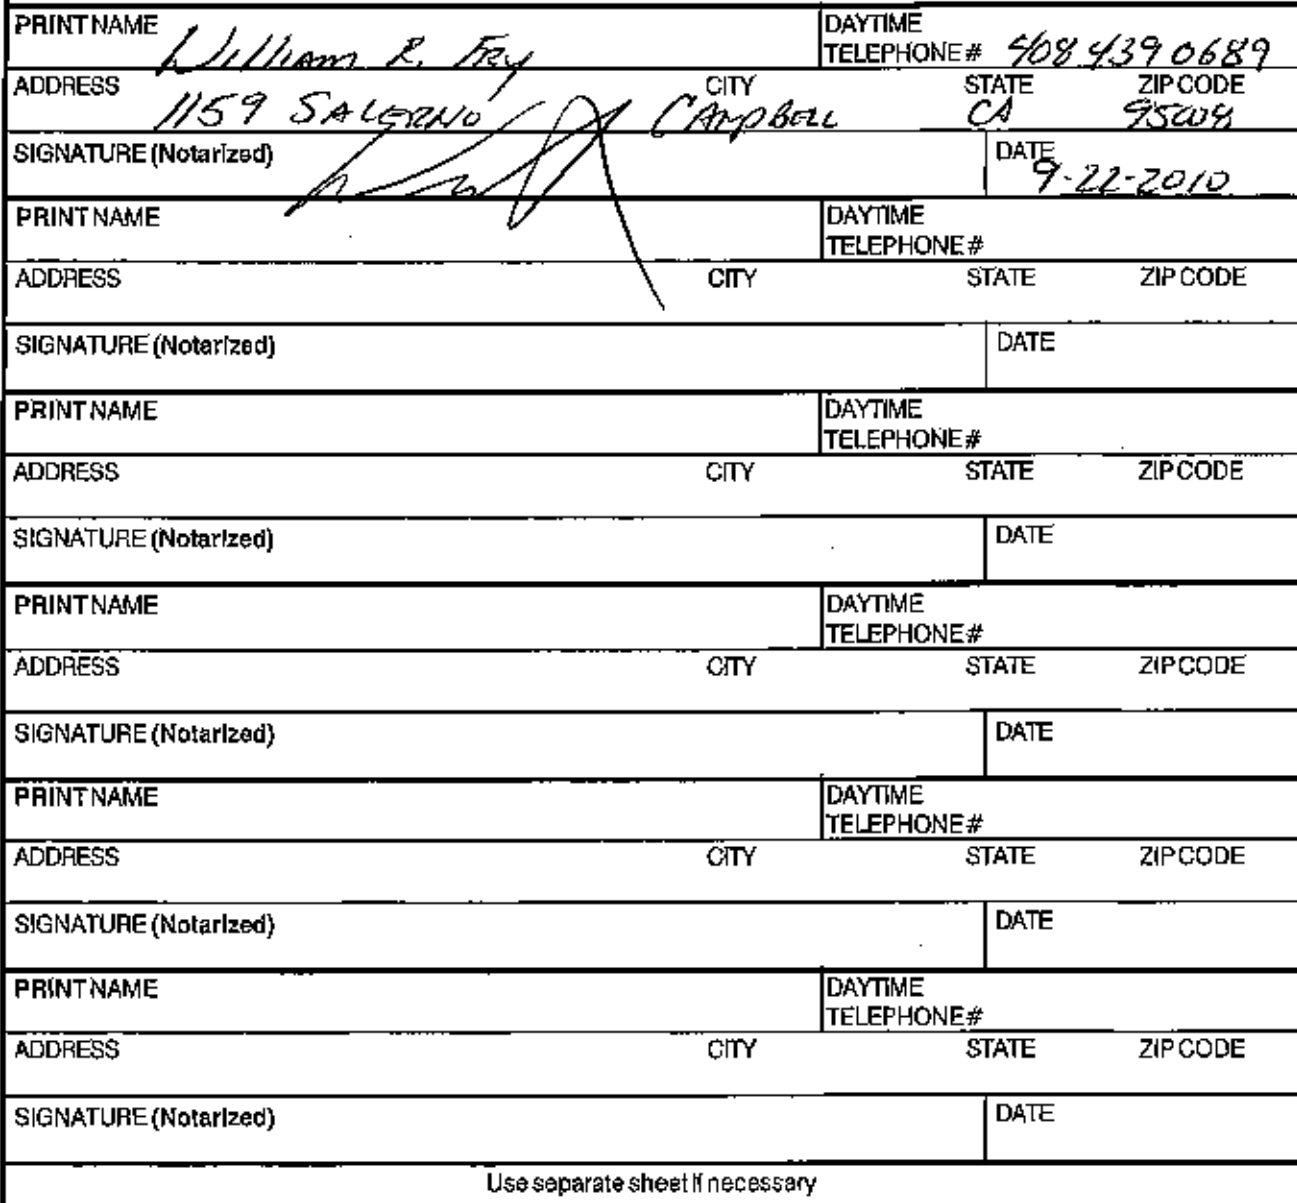 PRINT NAME William R. Fry DAYTIME
TELEPHONE # 408 439 0689
ADDRESS 1159 SALERNO CITY CAMPBELL STATE CA ZIP CODE 95008
SIGNATURE (Notarized) DATE 9-22-2010
PRINT NAME DAYTIME
TELEPHONE #
ADDRESS CITY STATE ZIP CODE
SIGNATURE (Notarized) DATE
PRINT NAME DAYTIME
TELEPHONE #
ADDRESS CITY STATE ZIP CODE
SIGNATURE (Notarized) DATE
PRINT NAME DAYTIME
TELEPHONE #
ADDRESS CITY STATE ZIP CODE
SIGNATURE (Notarized) DATE
PRINT NAME DAYTIME
TELEPHONE #
ADDRESS CITY STATE ZIP CODE
SIGNATURE (Notarized) DATE
PRINT NAME DAYTIME
TELEPHONE #
ADDRESS CITY STATE ZIP CODE
SIGNATURE (Notarized) DATE
Use separate sheet if necessary